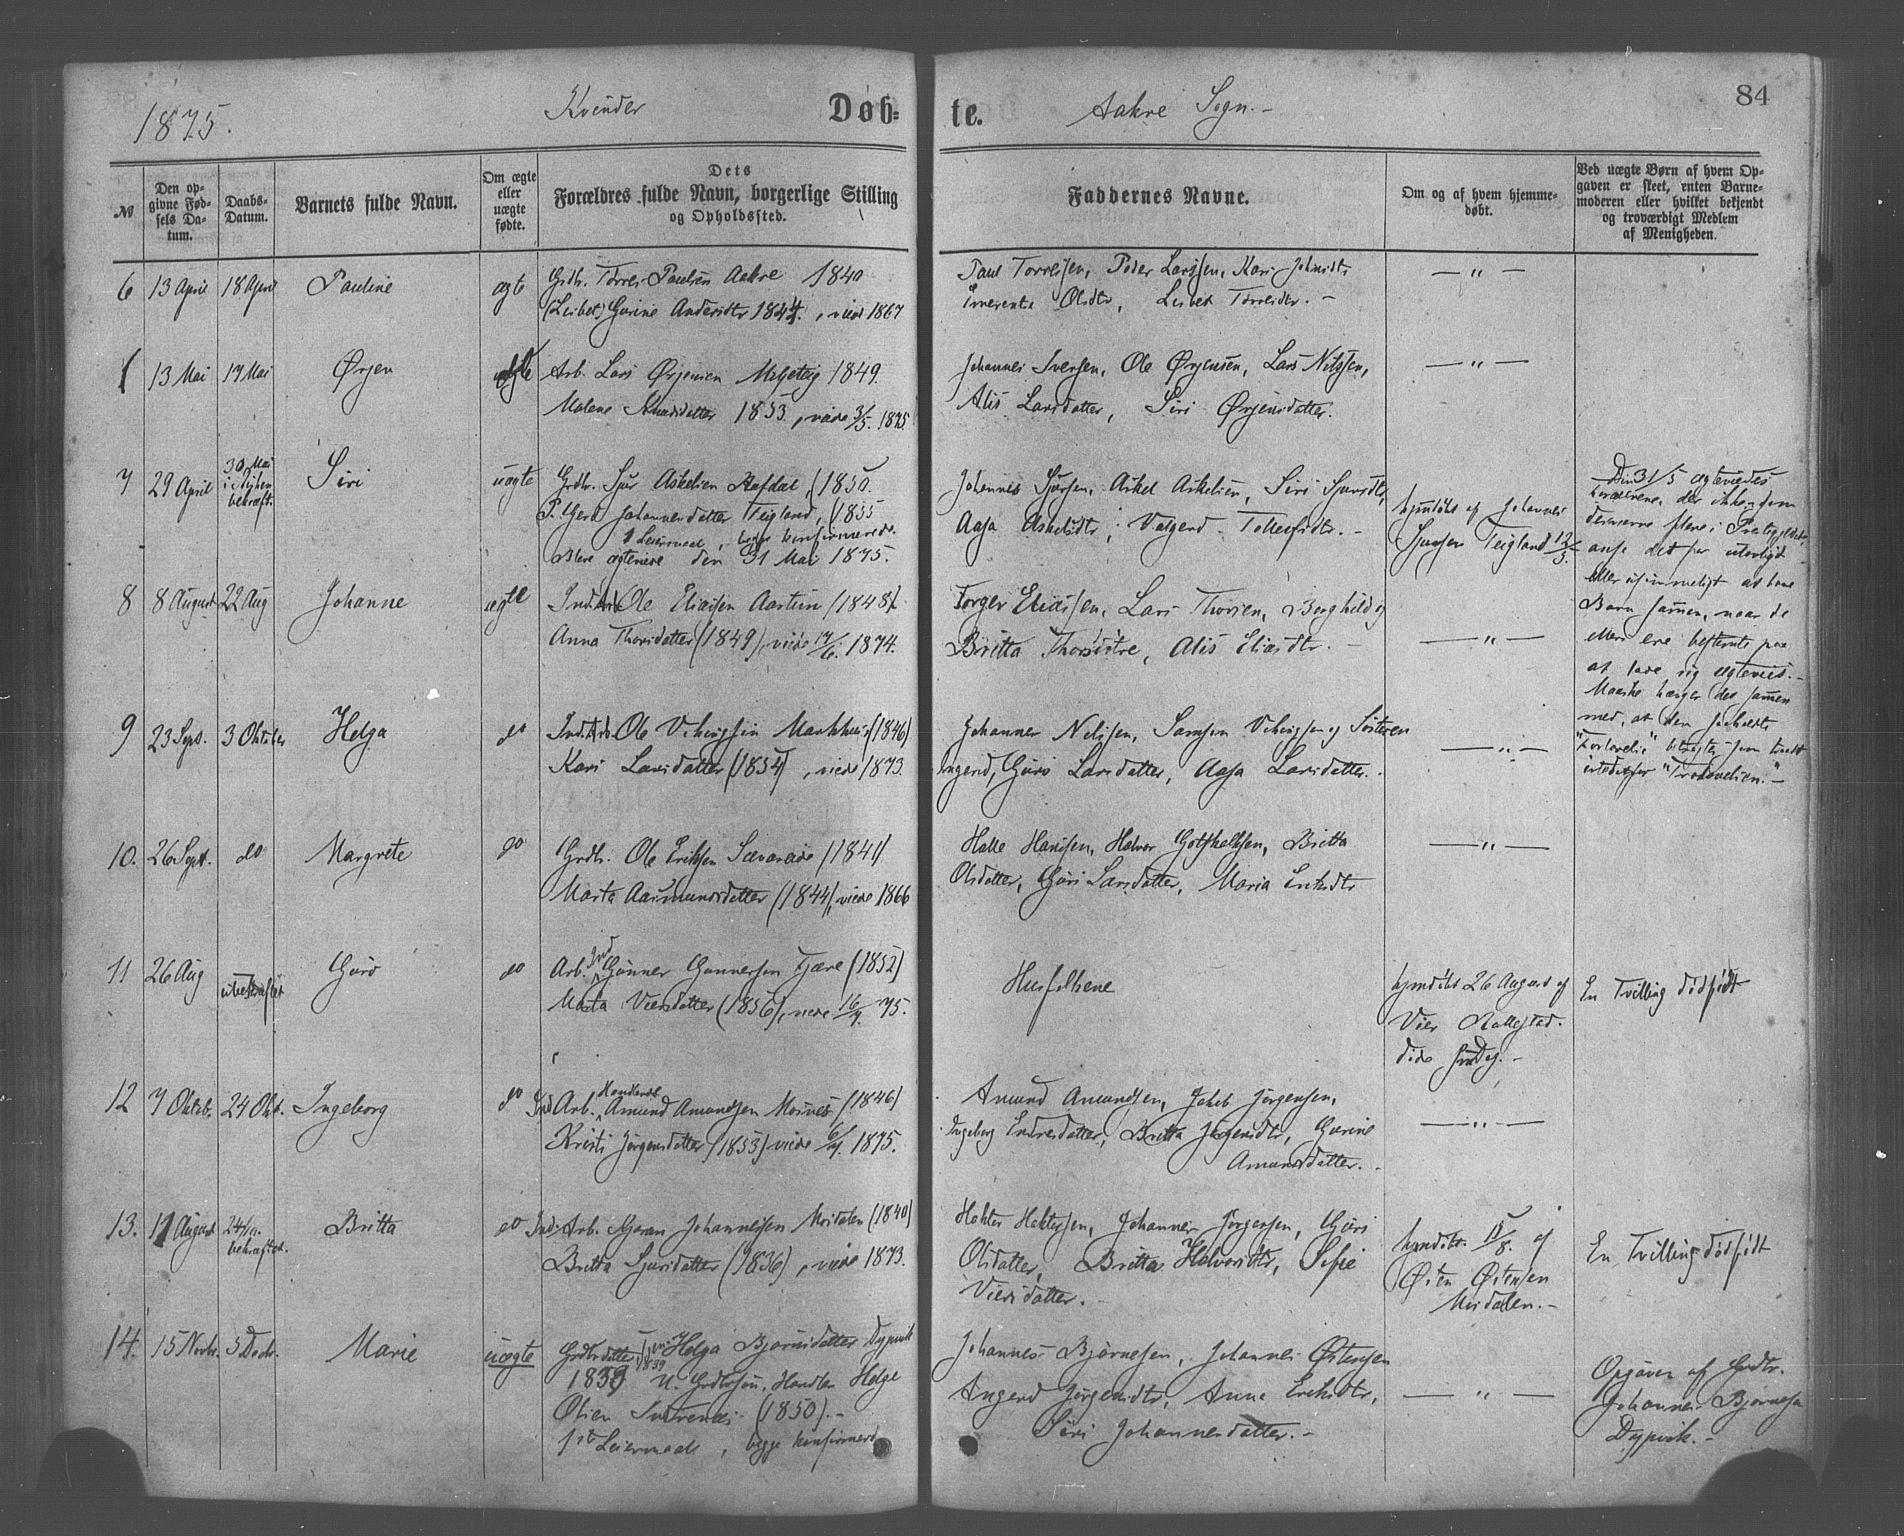 1875.
Kvinder
Døb=
te.
Aakre Sogn.-
84
№
Den op-
givne Fød-
sels Da-
tum.
Daabs-
Datum.
Barnets fulde Navn.
Om ægte
eller
uægte
fødte.
Dets
Forældres fulde Navn, borgerlige Stilling
og Opholdssted.
Faddernes Navne.
Om og af hvem hjemme-
døbt.
Ved uægte Børn af hvem Op-
gaven er skeet, enten Barne-
moderen eller hvilket bekjendt
og troværdigt Medlem
af Menigheden.
6 13 April 18 April Pauline ægte Grdbr. Torres Paulsen Aakre 1840
(Lisbet) Gurine Andersdtr 1844, viede 1867
Paul Torresen, Peder Larssen, Kari
Olsdtr, Lisbet Torresdtr. -
— „ —
13 Mai 17 Mai Ørjen ægte Arb. Lars Ørjensen 1849.
Malene Knudsdatter 1853, viede 3/5. 1875.
Johannes Iversen, Ole Ørjensen, Lars Nilssen,
Alis Larsdatter, Siri Ørjensdatter.
— „ —
7 29 April 30 Mai
bekræft.
Siri uægte Grdbr. Sjur Askelsen Aafdal, (1850.
P. Gerd Johannesdatter Teigland, (1855
1 Leiermaal, begge konfirmerede.
Blev ægteviede den 31 Mai 1875.
Johannes Sjursen, Askel Askelsen, Siri Sjursdtr,
Aasa Askelsdtr, Valgerd Tollefsdtr. -
hjmdøbt af Johannes
Sjursen Teigland
Den 31/5 ægteviedes
Forældrene, der ikke, som
desværre flere i Præstegjeldet,
anse det for utorligt
eller usømmeligt at have
Barn sammen, naar de
ellers ere bestemte paa
at lade sig ægtevies. -
Maaske hænger det sammen
med, at den
"Forlovelse" betragtes som
"Trolovelsen." -
8 8 August 22 Aug Johanne ægte Ind. Arb. Ole Eliassen Aartun (1848)
Anna Thorsdatter (1849), viede 14/6. 1874.
Torger Eliassen, Lars Thorsen, Borghild og
Britta Thorsdøtre, Alis Eliasdtr. -
— „ —
9 23 Sept. 3 Oktober Helga do Ind. Arb. Ole Vikingsen Markhus (1846)
Kari Larsdatter (1854), viede 1873.
Johannes Nilsen, Samson Vikingsen og Søsteren
Ingerid, Guro Larsdatter, Aasa Larsdatter.
— „ —
10. 26 Sept. do Margrete do Grdbr. Ole Eriksen Sævareide (1841)
Marta Aasmundsdatter (1844), viede 1866
Halle Hansen, Halvor Gotskalksen, Britta
Olsdatter, Guri Larsdatter, Maria Eriksdtr
— „ —
11 26 Aug ubekræftet Guro do Arb. Ind Gunner Gunnersen Fjære (1852)
Marta Viersdatter (1856), viede 16/4. 75.
Husfolkene
hjmdøbt 26 August af
Vier Rullestad.
død samdag. -
En Tvilling dødfødt
12 7 Oktob. 24 Okt. Ingeborg do Ind Arb. Handlende Amund Amundsen Mosnes (1846)
Kristi Jørgensdatter (1853) viede 6/4. 1875.
Amund Amundsen, Jakob Jørgensen,
Ingeborg Endresdatter, Britta Jørgensdtr, Gurine
Amundsdatter. -
— „ —
13. 11 August 24/10.
bekræftet.
Britta do Ind. Arb. Gøran Johannessen Mosdalen (1840)
Britta Sjursdatter (1836), viede 1873.
Hakter Haktersen, Johannes Jørgensen, Guri
Olsdatter, Britta Halvorsdtr, Sofie
Viersdatter. -
hjmdøbt 11/8. af
Østen Østensen
Mosdalen. -
En Tvilling dødfødt
14. 15 Novbr. 5 Decbr. Marie uægte Grdbrdatter Helga Bjørnsdatter Dypvik
1839 U. Grdbrsøn, Handler Helge
Olsen (1850). -
1ste Leiermaal, begge konfirmered
Johannes Bjørnesen, Johannes Østensen
Angerd Jørgensdtr, Anna Eriksdtr,
Siri Johannesdatter. -
— „ —
Opgaven af Grdbr.
Johannes Bjørnesen
Dypvik. -